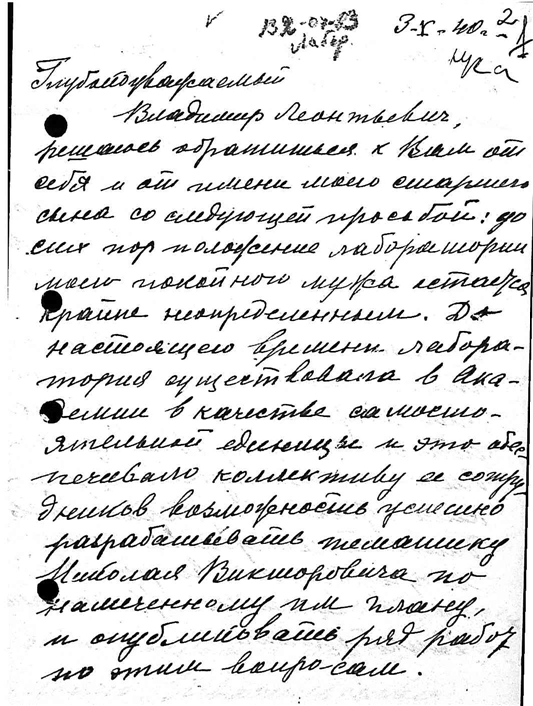 132-04-53 3-X-40 г.
Лабор.
Глубокоуважаемый
Владимир Леонтьевич,
решаюсь обратиться к Вам от
себя и от имени моего старшего
сына со следующей просьбой: до
сих пор положение лаборатории
моего покойного мужа остается
крайне неопределенным. До
настоящего времени лабора-
тория существовала в Ака-
демии в качестве самосто-
ятельной единицы и это обес-
печивало коллективу ее сотру-
дников возможность успешно
разрабатывать тематику
Николая Викторовича по
намеченному им плану,
и опубликовать ряд работ
по этим вопросам.